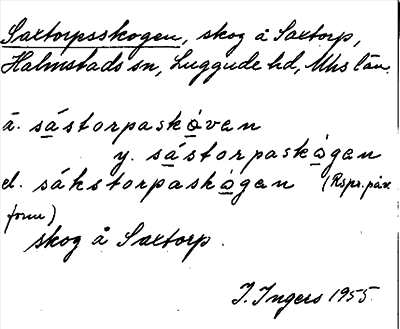 Saxtorpsskogen, skog å Saxtorp,
Halmstads sn, Luggude hd, Mhs län.
ä. sástorpaskọvan
y. sástorpaskọgan
el. sákstorpaskọgan (Rspr.påv.
form)
skog å Saxtorp.
I. Ingers 1955.